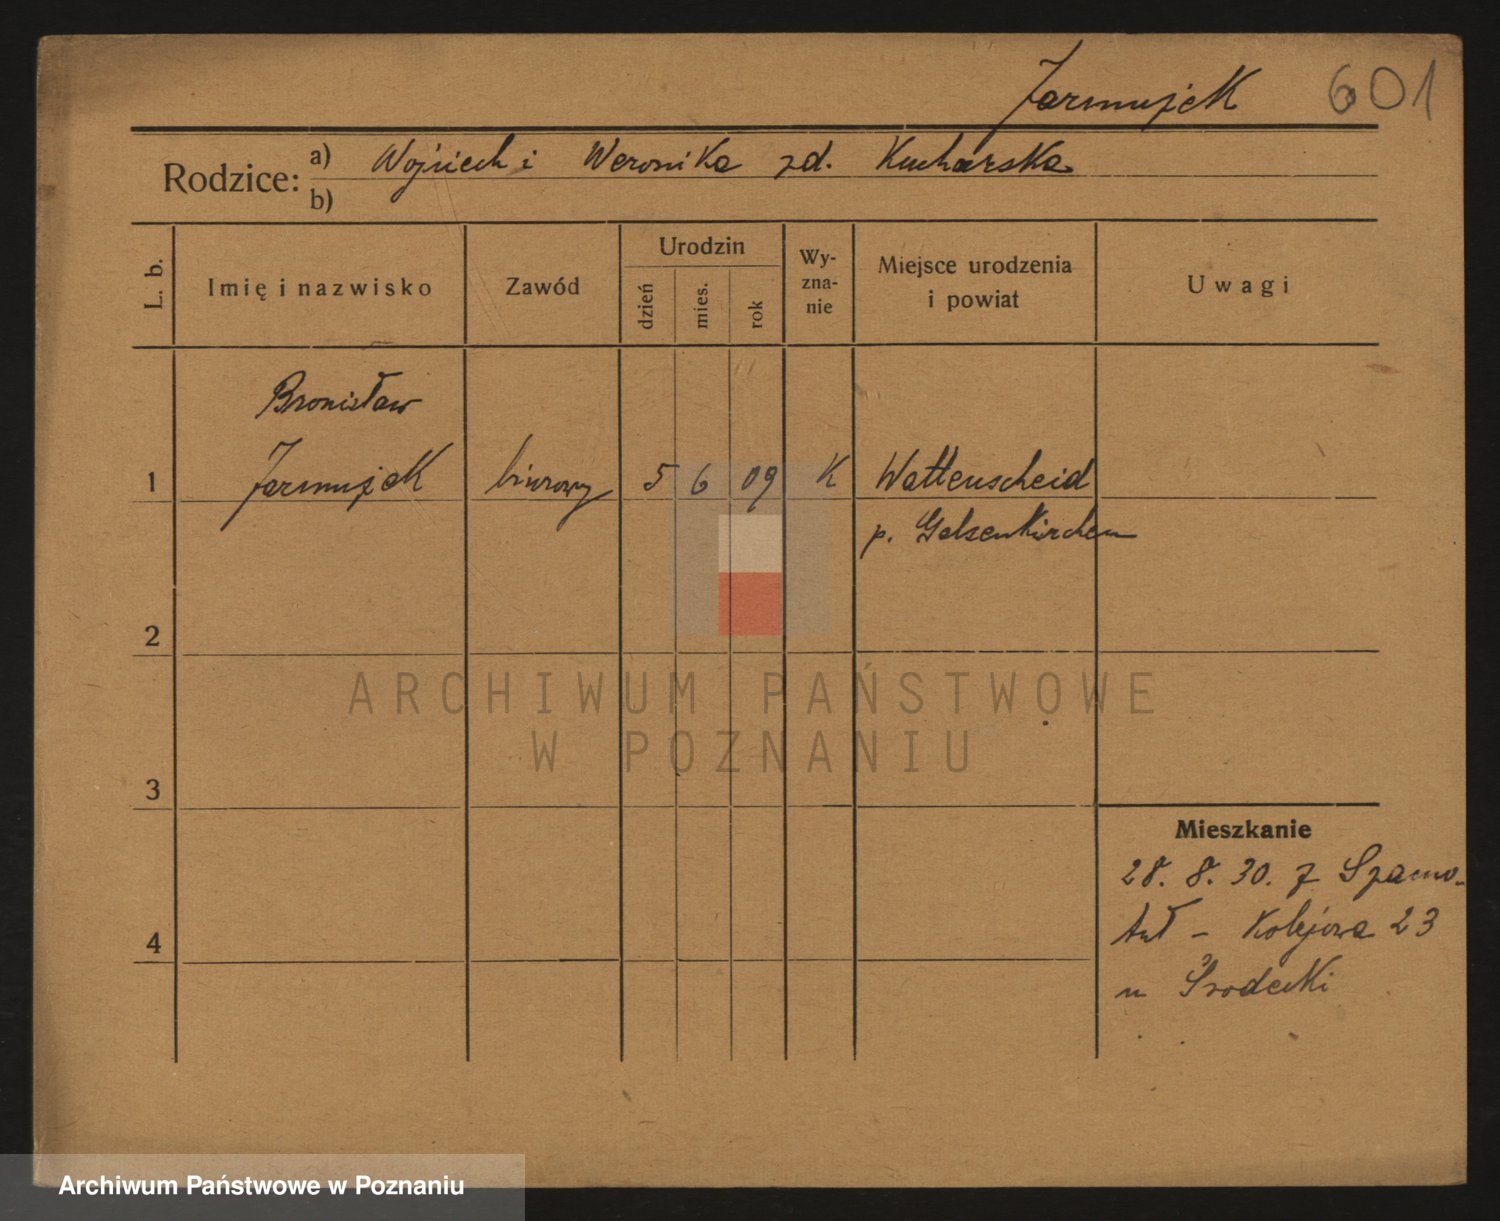 Jarmużek 601
Rodzice: a) Wojciech i Weronika zd. Kucharska
b)
L. b.
Imię i nazwisko
Zawód
Urodzin
dzień
mies.
rok
Wy-
zna-
nie
Miejsce urodzenia
i powiat
Uwagi
Bronisław
1 Jarmużek biurowy 5 6 09 K Wattenscheid
p. Gelsenkirchen
2
ARCHIWUM PAŃSTWOWE
W POZNANIU
3
Mieszkanie
28. 8. 30. z Szamo-
tuł - Kolejowa 23
4
u Środecki
Archiwum Państwowe w Poznaniu